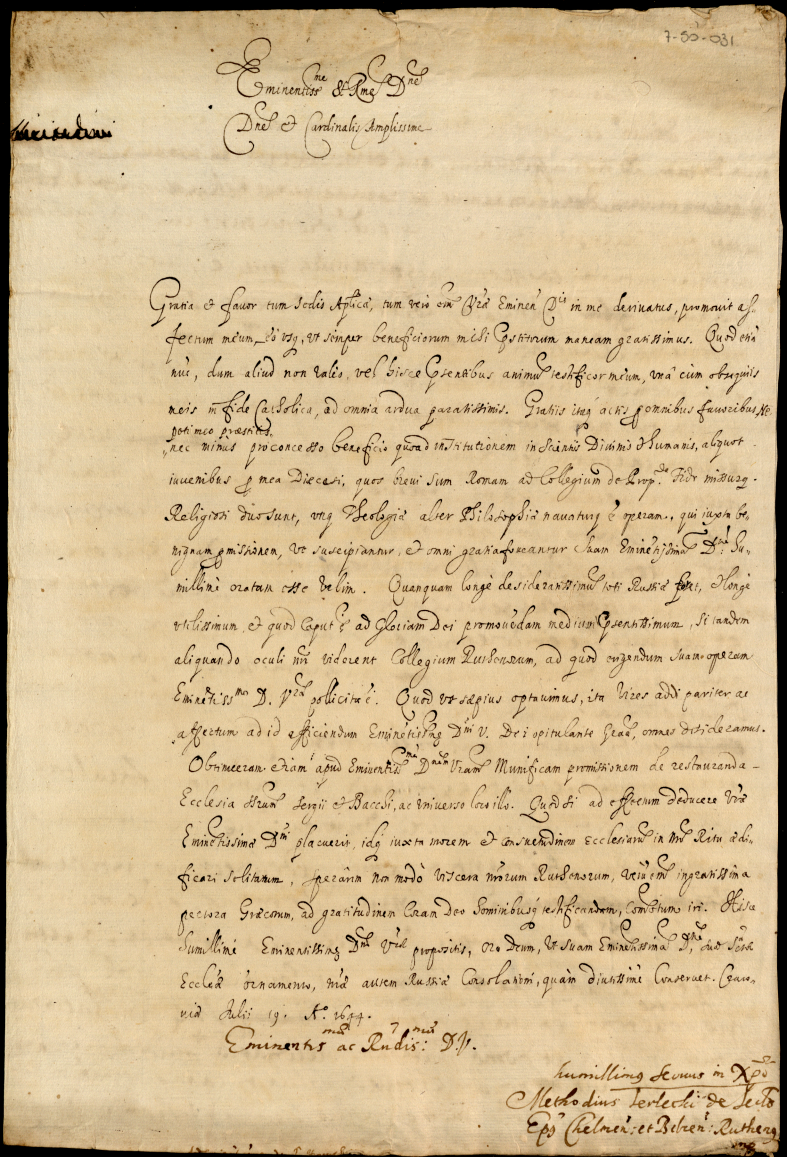 7-50-031
Eminentissne & Rme Dne
Dne et Cardinalis Amplissime
Gratia et favor tum Sedis Aplicæ, tum vero em Vræ Eminen Dis in me derivatus, promovit af-
fectum meum, eò usq, ut semper beneficiorum mihi pstitorum maneam gratissimus. Quod etiã
nuc, dum aliud non valeo, vel hisce psentibus animũ testificor meum, unà cum obsequiis
meis in fide Catholica, ad omnia ardua paratissimis. Gratiis itaq actis p omnibus favoribus
nepoti meo præstitis,
nec minus pro concesso beneficio quoad institutionem in Scientiis Divinis & humanis, aliquot
iuvenibus p mea Diæcesi, quos
Romam ad Collegium de Prop. Fide
Religiosi duo sunt, Theologiæ alter Philosophiæ operam, qui iuxta be-
nignam pmissionem, ut suscipiantur, et omni gratia foveantur Suam Eminetissimã Dne hu-
millimè oratam esse velim. Quanquam longè desideratissimũ toti Russiæ foret, & longè
utilissimum, et quod caput ẽ ad Gloriam Dei promovẽdam medium psentissimum, si tandem
aliquando oculi nri viderent Collegium Ruthenorum, ad quod erigendum suam operam
Eminẽtissma D. Vra pollicita ẽ. Quod ut sæpius optavimus, ita vires addi pariter ac
affectum ad id efficiendum Eminẽtissimæ Dni V. Dei opitulante Gratia, omnes desideramus.
Obtinueram etiam apud Eminentissmã Dnem Vram Munificam promissionem de restauranda
Ecclesia Strum Sergii et Bacchi, ac universo loco illo. Quod si ad effectum deducere Vræ
Eminẽtissimæ Dni placuerit, idq iuxta morem et consuetudinem Ecclesiarum in nro Ritu ædi-
ficari solitarum, sperarim non modò viscera nrorum Ruthenorum, verũ em ingratissima
pectora Græcorum, ad gratitudinem coram Deo hominibusq testificandam, iri. Hisce
humillimè Eminentissimæ Dni Vræ propositis, oro Deum, ut Suam Eminẽtissimã D.
Ecclæ ornamento, nræ autem Russiæ Consolationi, quàm diutissimè conservet.
Julii 19. Ao. 1644.
Eminentismæ ac Rndismæ: D.V.
humillimus servus in Xpo
Methodius Terlecki de Terlo
Epus Chelmen: et Belzen: Ruthenorum